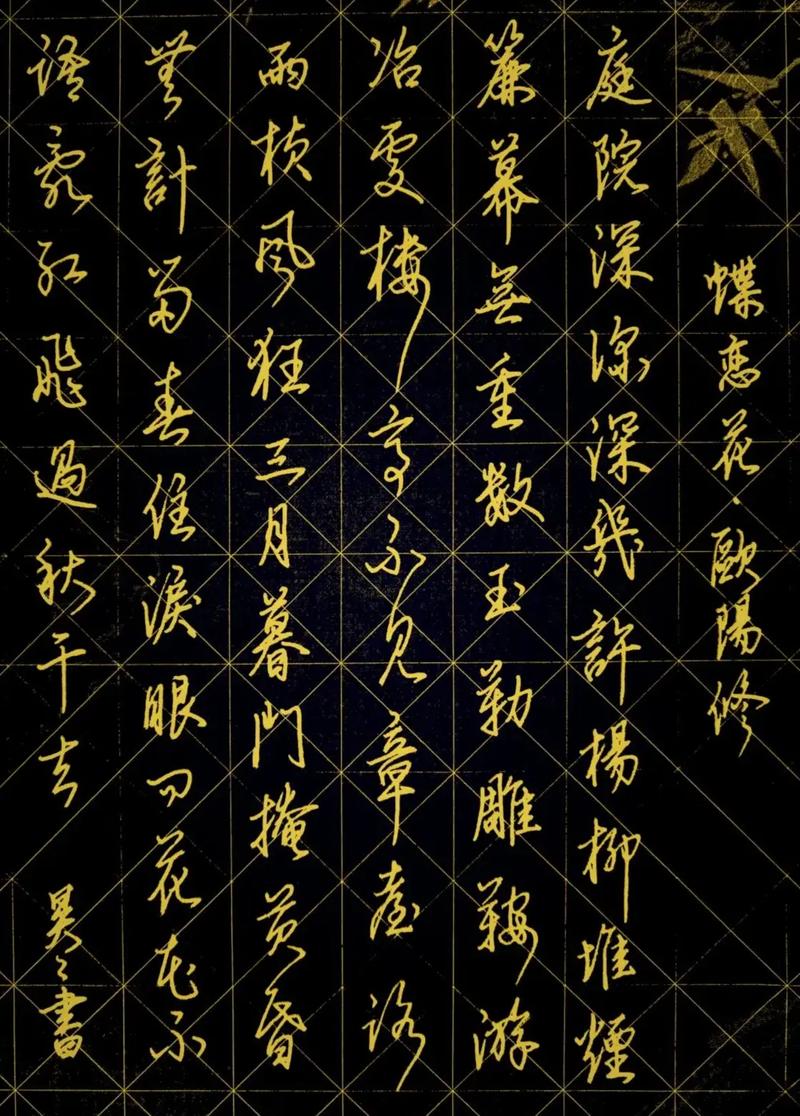 蝶恋花·歐陽修
庭院深深深幾許楊柳堆煙
簾幕無重數玉勒雕鞍游
冶處樓高不見章臺路
雨橫風狂三月暮門掩黃昏
無計留春住淚眼問花花不
語亂紅飛過秋千去
昊々書